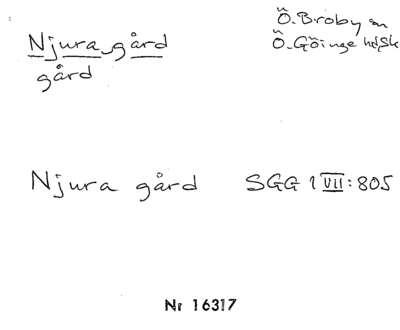 Njura gård
gård
Ö. Broby sn
Ö. Göinge hd, Sk
Njura gård SGG 1 VII: 805
Nr 16317